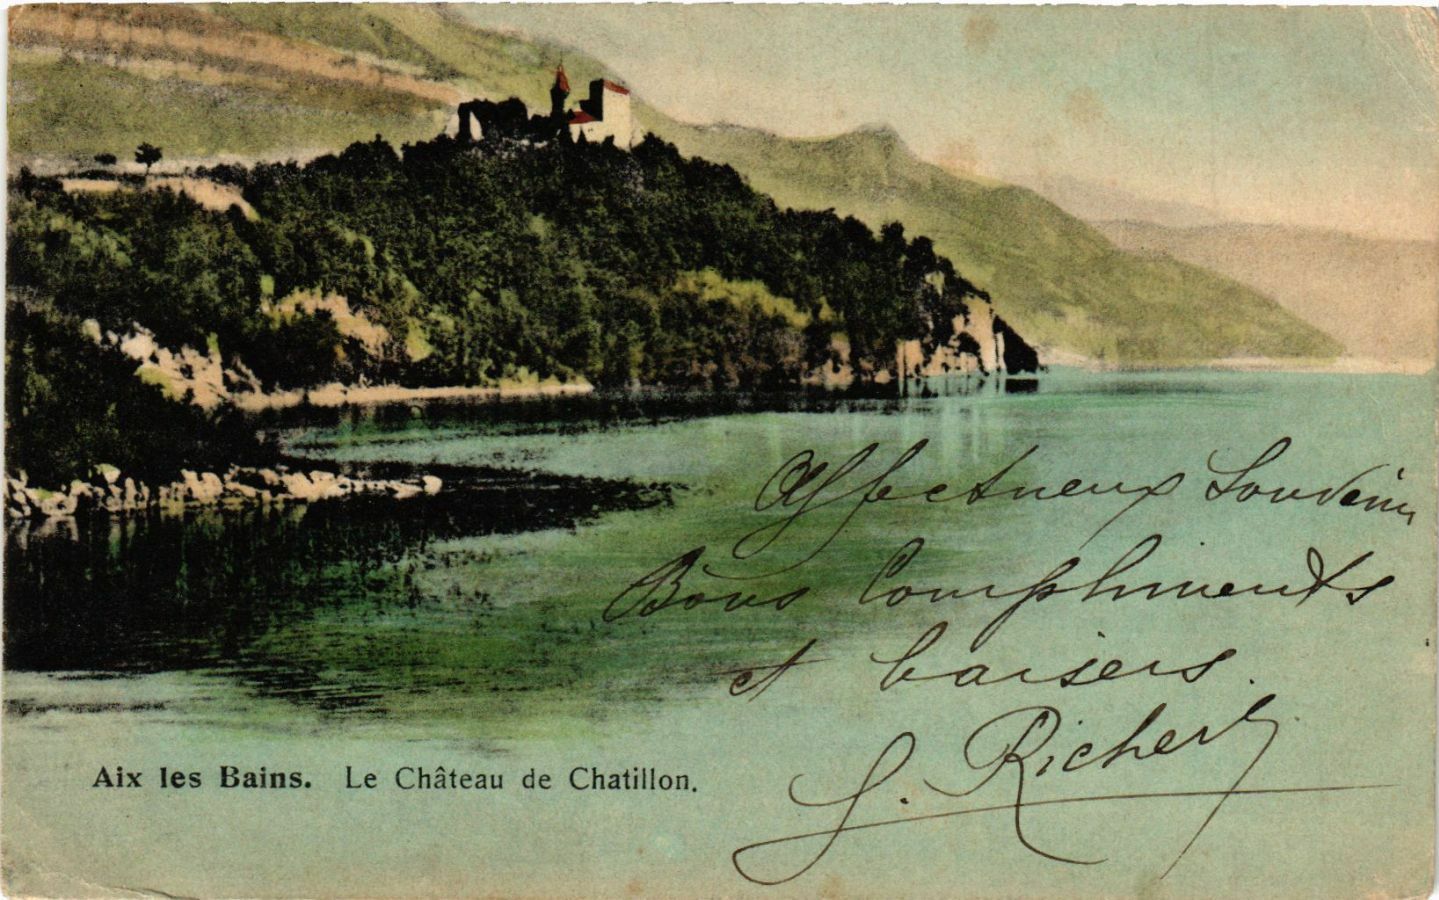 Affectueux Souvenir
Bons Compliments
et baisers.
Aix les Bains. Le Château de Chatillon.